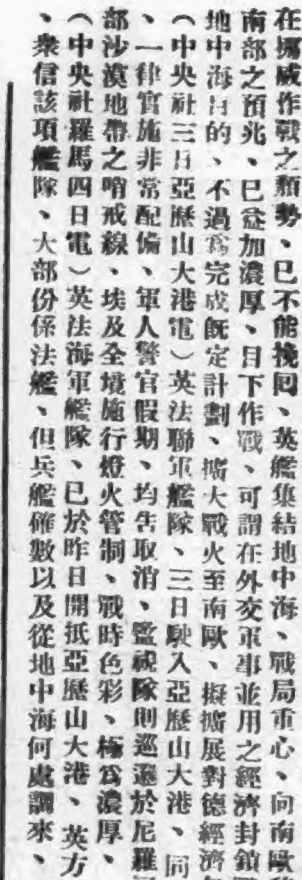 在挪威作戰之頹勢、已不能挽回、英艦集結地中海、戰局重心、向南歐
南部之預兆、已益加濃厚、目下作戰、可謂在外交軍事並用之經濟封鎖
地中海目的、不過爲完成既定計劃、擴大戰火至南歐、擬擴展對德經濟
(中央社三日亞歷山大港電)英法聯軍艦隊、三日駛入亞歷山大港、同
、一律實施非常配備、軍人警官假期、均告取消、監視隊則巡邏於尼羅
部沙漠地帶之哨戒線、埃及全境施行燈火管制、戰時色彩、極爲濃厚、
(中央社羅馬四日電)英法海軍艦隊、已於昨日開抵亞歷山大港、英方
、衆信該項艦隊、大部份係法艦、但兵艦確數以及從地中海何處調來、